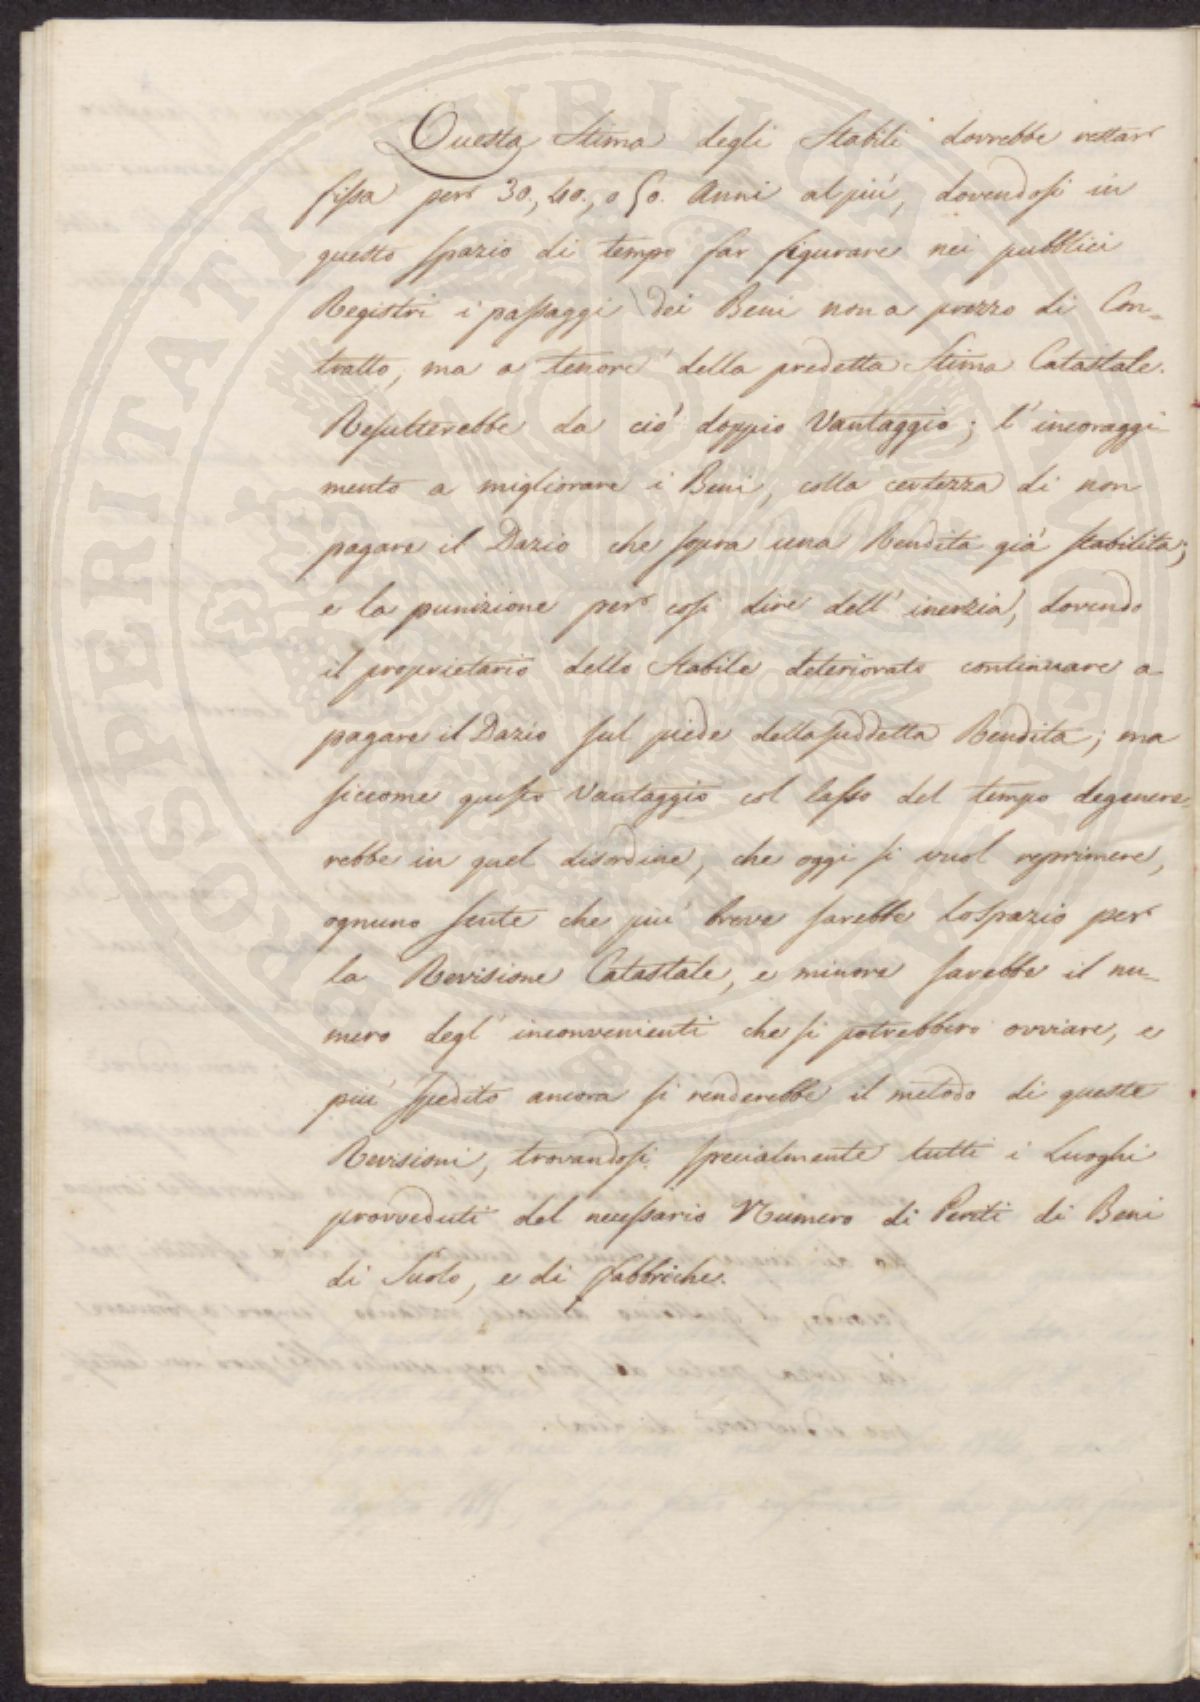 Questa Stima degli Stabili dovrebbe restar
fissa per 30., 40., o 50. Anni al più, dovendosi in
questo spazio di tempo far figurare nei pubblici
Registri i passaggi dei Beni non a prezzo di Con=
tratto, ma a tenore della predetta Stima Catastale.
Resulterebbe da ciò doppio Vantaggio; l'incoraggi
mento a migliorare i Beni, colla certezza di non
pagare il Dazio che sopra una Rendita già stabilita;
e la punizione per così dire dell'inerzia, dovendo
il proprietario dello Stabile deteriorato continuare a
pagare il Dazio sul piede della suddetta Rendita; ma
siccome questo Vantaggio col lasso del tempo degenere=
rebbe in quel disordine, che oggi si vuol reprimere,
ognuno sente che più breve sarebbe lo spazio per
la Revisione Catastale, e minore sarebbe il nu=
mero degl'inconvenienti che si potrebbero ovviare, e
più spedito ancora si renderebbe il metodo di queste
Revisioni, trovandosi specialmente tutti i Luoghi
provveduti del necessario Numero di Periti di Beni
di Suolo, e di fabbriche.
PROSPERITATI PUBLICAE AUGENDAE